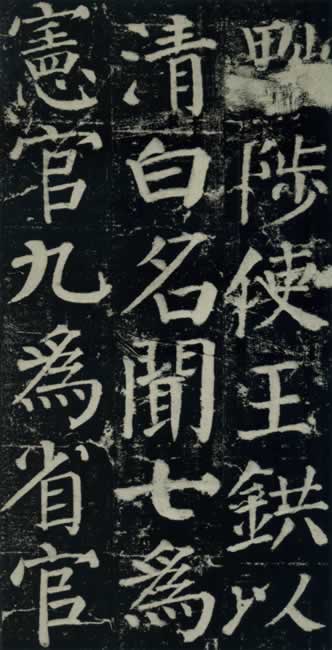 黜陟使王鉷以
清白名聞七為
憲官九為省官